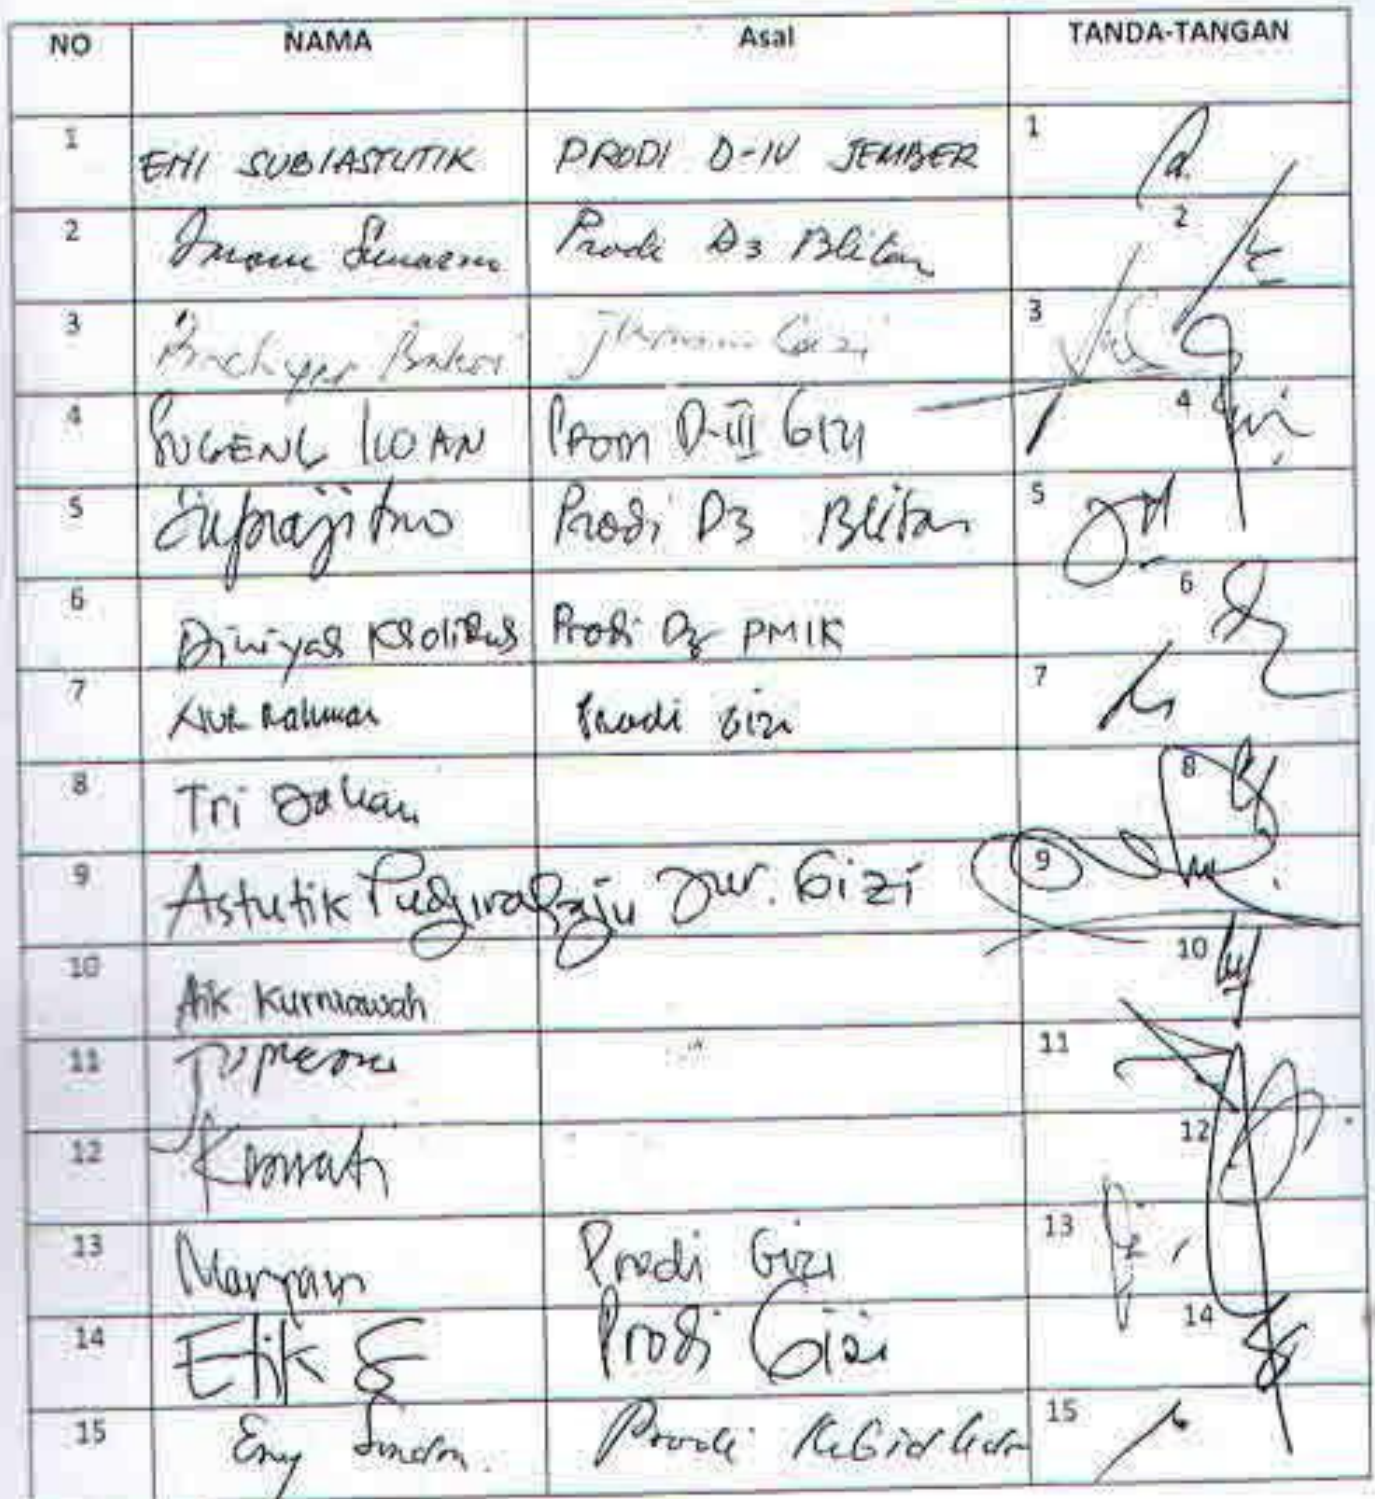 NO NAMA Asal TANDA-TANGAN
1 ENI SUBIASTUTIK PRODI D-IV JEMBER 1
2 Imam Sunarno Prodi D3 Blitar 2
3 Bakri Jurusan Gizi 3
4 SUGENG IWAN Prodi D-III Gizi 4
5 Suprajitno Prodi D3 Blitar 5
6 Diniyah Kholidah Prodi D3 PMIK 6
7 Nur Rahman Prodi Gizi 7
8 Tri Johan 8
9 Astutik Pudjirahaju Jur. Gizi 9
10 Aik Kurniawah 10
11 11
12 12
13 Maryam Prodi Gizi 13
14 Etik S Prodi Gizi 14
15 Eny Prodi Kebidanan 15